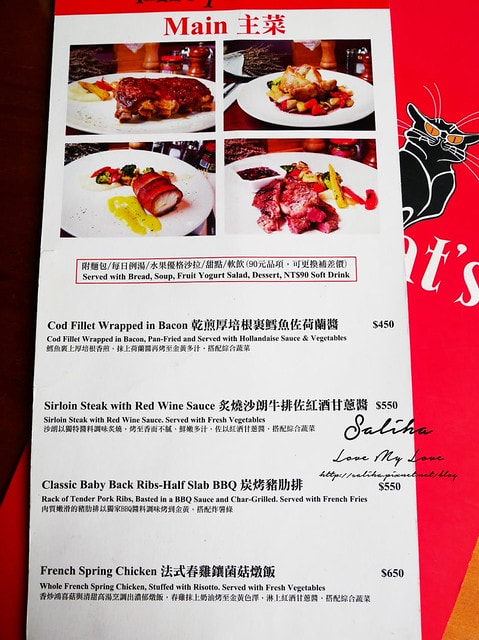 Main 主菜
附麵包/每日例湯/水果優格沙拉/甜點/軟飲(90元品項，可更換補差價)
Served with Bread, Soup, Fruit Yogurt Salad, Dessert, NT$90 Soft Drink
Cod Fillet Wrapped in Bacon 乾煎厚培根裹鱈魚佐荷蘭醬 $450
Cod Fillet Wrapped in Bacon, Pan-Fried and Served with Hollandaise Sauce & Vegetables
鱈魚裹上厚培根香煎，抹上荷蘭醬再烤至金黃多汁，搭配綜合蔬菜
Sirloin Steak with Red Wine Sauce 炙燒沙朗牛排佐紅酒甘蔥醬 $550
Sirloin Steak with Red Wine Sauce. Served with Fresh Vegetables
沙朗以獨特醬料調味炙燒，烤至香而不膩、鮮嫩多汁，佐以紅酒甘蔥醬，搭配綜合蔬菜
Saliha
Love My Love
https://saliha.pixnet.net/blog
Classic Baby Back Ribs-Half Slab BBQ 炭烤豬肋排 $550
Rack of Tender Pork Ribs, Basted in a BBQ Sauce and Char-Grilled. Served with French Fries
肉質嫩滑的豬肋排以獨家BBQ醬料調味烤到金黃，搭配炸薯條
French Spring Chicken 法式春雞鑲菌菇燉飯 $650
Whole French Spring Chicken, Stuffed with Risotto. Served with Fresh Vegetables
香炒鴻喜菇與清甜高湯烹調出濃郁燉飯，春雞抹上奶油烤至金黃色澤，淋上紅酒甘蔥醬，搭配綜合蔬菜